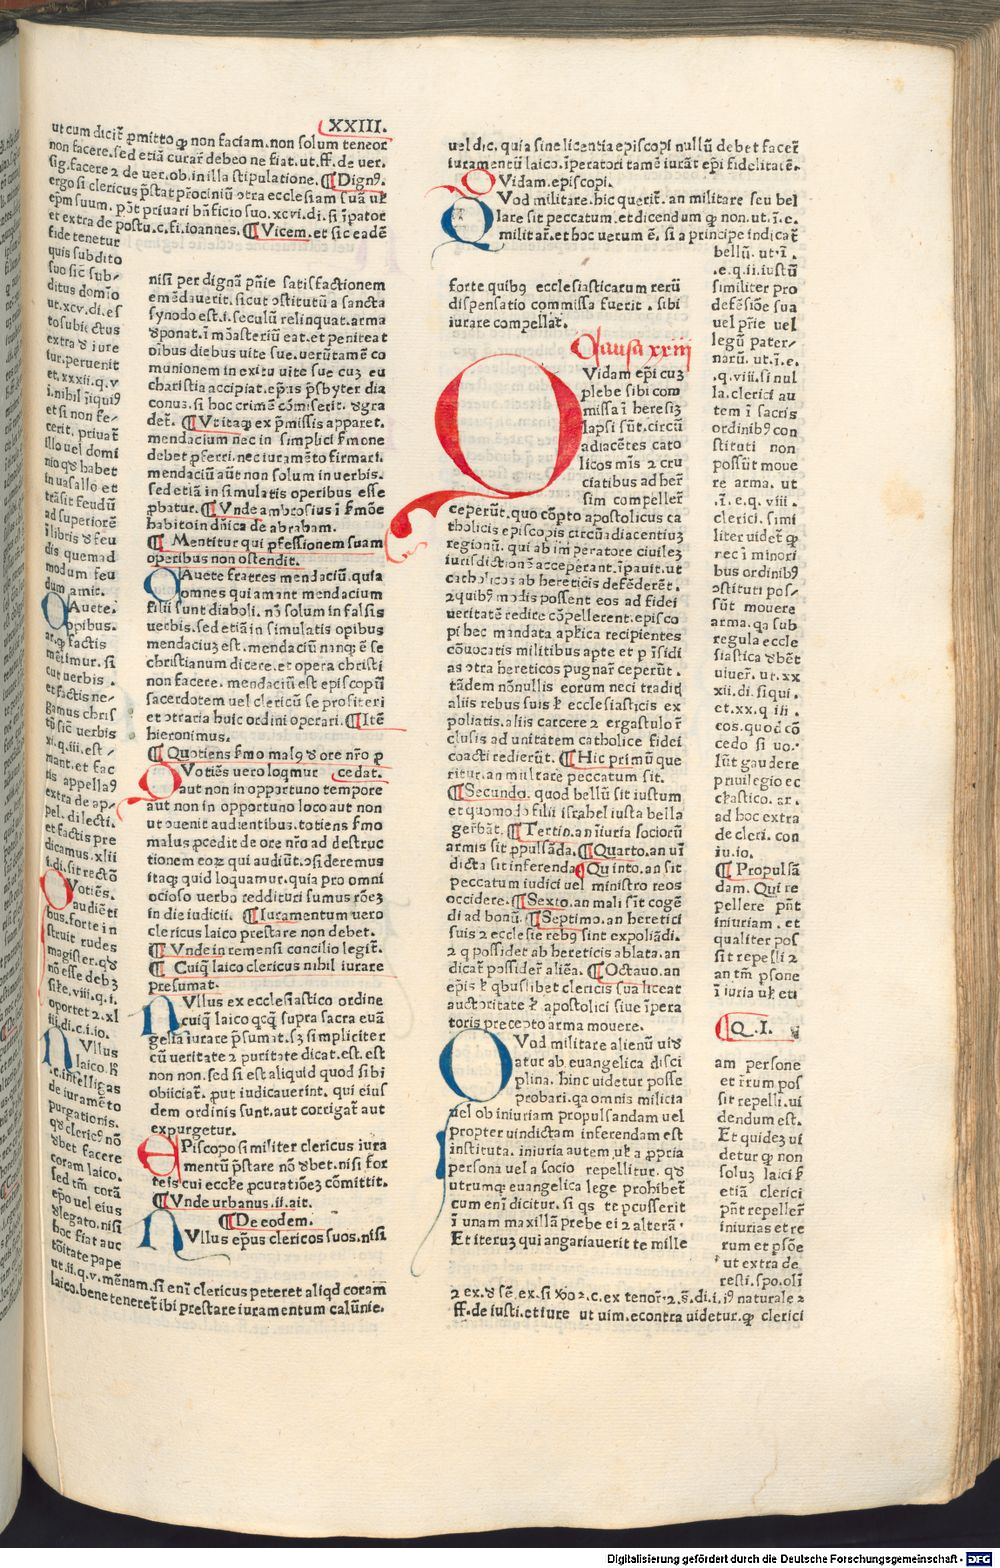 XXIII.
ut cum dicit̃ ꝓmitto ꝙ non faciam.non solum teneor
non facere.sed etiã curar̃ debeo ne fiat.ut.ff.de uer.
sig.facere 2 de uer.ob.in illa stipulatione.¶Dignꝰ.
ergo si clericus p̃stat ꝓciniũ otra ecclesiam suã ul̃
ep̃m suum. põt priuari bñficio suo.xcvi.di.si ĩpator
et extra de postu.c.fi.ioannes.¶Vicem.et sic eadẽ
fide tenetur
quis subdito
suo sic̃ sub⸗
ditus domĩo
ut.xcv.di.es
to subiectus
extra ꝺ iure
iur.peruenit
et.xxxii.q.v
i.nihil ĩiquiꝰ
et si non fe⸗
cerit. priuat̃
illo uel domi
nio qꝺ habet
in uasallo et
trãsit feudũ
ad superiorẽ
ĩ libris ꝺ feu
dis quemad
modum feu
dum amit.
CAuete.
opibus.
ar.ꝙ factis
mẽtimur. si
cut uerbis .
et factis ne⸗
gamus chris
tũ sic̃ uerbis
xi.q.iii.est ⸗
mant.et fac
tis appellaꝰ
extra de ap⸗
pel. dilecti.
et factis pre
dicamus.xlii
i.di.sit rectõ
QVotiẽs.
audiẽti
bus.forte in
struit rudes
magister.qꝺ
nõ esse debꝫ
sil̃e.viii.q.i.
oportet 2.xl
iii.di.c.i.io.
NVllus
laico.hͥ
.c.intelligas
de iuramẽto
purgationis.
qꝺ clericꝰ nõ
ꝺbet facere
coram laico.
sed tm̃ corã
ep̃o uel eius
ꝺlegato.nisi
hoc fiat auc
tõitate pape
ut.ii.q.v.mẽnam.si eni clericus peteret aliqd coram
laico.bene teneret̃ ibi prestare iuramentum calũnie.
nisi per dignã pñie satisfactionem
emẽdauerit.sicut ɔstitutũ a sancta
synodo est.i.seculũ relinquat.arma
ꝺponat.ĩ mõasteriũ eat.et peniteat
oibus diebus uite sue.uerũtamẽ co
munionem in exitu uite sue cuꝫ eu
charistia accipiat.ep̃us p̃sbyter dia
conus.si hoc crimẽ cõmiserit. ꝺgra
det̃. ¶Vt itaqꝫ ex p̃missis apparet.
mendacium nec in simplici s̃mone
debet ꝓferri.nec iuramẽto firmari.
mendaciũ aũt non solum in uerbis.
sed etiã in simulatis operibus esse
ꝓbatur.¶Vnde ambrosius ĩ s̃mõe
habito in dñica de abrabam.
¶ Mentitur qui ꝓfessionem suam
operibus non ostendit.
CAuete fratres mendaciũ.quia
omnes qui amant mendacium
filii sunt diaboli. nõ solum in falsis
uerbis.sed etiã in simulatis opibus
mendaciuꝫ est.mendaciũ nanqꝫ ẽ se
christianum dicere.et opera christi
non facere. mendaciũ est episcopũ
sacerdotem uel clericũ se profiteri
et ɔtraria huic ordini operari.¶Itẽ
hieronimus.
¶Quotiens s̃mo malꝰ ꝺ ore nr̃o ꝓ
cedat.
QVotiẽs uero loqmur
aut non in opportuno tempore
aut non in opportuno loco aut non
ut ɔuenit audientibus.totiens s̃mo
malus ꝓcedit de ore nr̃o ad destruc
tionem eoꝝ qui audiũt.ɔsideremus
itaqꝫ quid loquamur.quia pro omni
ocioso uerbo reddituri sumus rõeꝫ
in die iudicii. ¶Iuramentum uero
clericus laico prestare non debet.
¶Vnde in remensi concilio legit̃.
¶ Cuiqꝫ laico clericus nihil iurare
presumat.
NVllus ex ecclesiastico ordine
cuiqꝫ laico qcqꝫ supra sacra euã
gelia iurare p̃sumat.sꝫ simpliciter
cũ ueritate 2 puritate dicat.est.est
non non.sed si est aliquid quod sibi
obiiciat̃. ꝓut iudicauerint. qui eius
dem ordinis sunt.aut corrigat̃ aut
expurgetur.
EPiscopo similiter clericus iura
mentũ p̃stare nõ ꝺbet.nisi for
te is cui eccl̃e ꝓcuratiõeꝫ cõmittit.
¶Vnde urbanus.ii.ait.
¶De eodem.
NVllus ep̃us clericos suos.nisi
uel dic. quia sine licentia episcopi nullũ debet facer̃
iuramentũ laico.ĩperatori tamẽ iurãt ep̃i fidelitatẽ.
QVidam.episcopi.
QVod militare.hic querit̃. an militare seu bel
lare sit peccatum.et dicendum ꝙ non.ut.ĩ.e.
militar̃.et hoc uerum ẽ. si a principe indicat̃
bellũ. ut.ĩ.
.e.q.ii.iustũ
similiter pro
defẽsiõe sua
uel pr̃ie uel
legũ pater⸗
narũ. ut.ĩ.e.
.q.viii.si nul
la.clerici au
tem ĩ sacris
ordinibꝰ con
stituti non
possũt moue
re arma. ut
.ĩ. e.q. viii .
clerici. simi
liter uidet̃ ꝙ
nec ĩ minori
bus ordinibꝰ
ɔstituti pos⸗
sũt mouere
arma.qa sub
regula eccle
siastica ꝺbẽt
uiuer̃. ut.xx
xii.di.si qui.
et.xx.q iii .
eos.quod cõ
cedo si uo.⸗
lũt gaudere
priuilegio ec
cl̃astico. ar.
ad hoc extra
de cleri. con
iu.io.
¶ Propulsã
dam. Qui re
pellere pñt
iniuriam . et
qualiter pos
sit repelli 2
an tm̃ psone
ĩ iuria ul̃ eti
¶Q.I.
am persone
et rirum.pos
sit repelli.ui
dendum est.
Et quideꝫ ui
detur ꝙ non
soluꝫ laici s̃
etiã clerici
pñt repeller̃
iniurias et re
rum et psõe
ut extra de
resti.spo.oli
2 ex.ꝺ sẽ.ex.si ꝟo 2.c.ex tenor̃.2.§.di.i.iꝰ naturale 2
ff.de iusti.et iure ut uim.econtra uidetur.ꝙ clerici
forte quibꝰ ecclesiasticarum rerũ
dispensatio commissa fuerit . sibi
iurare compellat̃.
Causa xxiii
QVidam ep̃i cuꝫ
plebe sibi com
missa ĩ heresiꝫ
lapsi sũt.circũ
adiacẽtes cato
licos mĩs 2 cru
ciatibus ad her̃
sim compeller̃
ceperũt.quo cõpto apostolicus ca
tholicis episcopis circũadiacentiuꝫ
regionũ. qui ab imperatore ciuileꝫ
iurisdictionẽ acceperant.ĩpauit.ut
catholicos ab hereticis defẽderẽt.
2 quibꝰ modis possent eos ad fidei
ueritatẽ redire cõpellerent.episco
pi hec mandata apl̃ica recipientes
cõuocatis militibus apte et p ĩsidi
as ɔtra hereticos pugnar̃ ceperũt.
tãdem nõnullis eorum neci traditꝭ
aliis rebus suis ł ecclesiasticis ex
poliatis.aliis carcere 2 ergastulo r̃
clusis ad unitatem catholice fidei
coacti redierũt. ¶Hic primũ que
ritur.an militare peccatum sit.
¶Secundo. quod bellũ sit iustum
et quomodo filii israhel iusta bella
gerbãt. ¶Tertio.an ĩiuria sociorũ
armis sit ꝓpulsãda.¶Quarto.an uĩ
dicta sit inferenda ¶Quinto.an sit
peccatum iudici uel ministro reos
occidere. ¶Sexto.an mali sĩt cogẽ
di ad bonũ. ¶Septimo.an heretici
suis 2 ecclesie rebꝰ sint expoliãdi.
2 q possidet ab hereticis ablata.an
dicat̃ possider̃ aliẽa. ¶Octauo.an
epis ł qbuslibet clericis sua liceat
auctoritate ł apostolici siue ĩpera
toris precepto arma mouere.
QVod militare alienũ uiꝺ
atur ab euangelica disci
plina. hinc uidetur posse
probari.qa omnis milicia
uel ob iniuriam propulsandam uel
propter uindictam inferendam est
instituta. iniuria autem.ul̃ a ꝓpria
persona uel a socio repellitur. qꝺ
utrumqꝫ euangelica lege prohibet̃
cum eni dicitur. si qs te pcusserit
ĩ unam maxillã prebe ei 2 alterã.
Et iteruꝫ qui angariauerit te mille
Digitalisierung gefördert durch die Deutsche Forschungsgemeinschaft - DFG